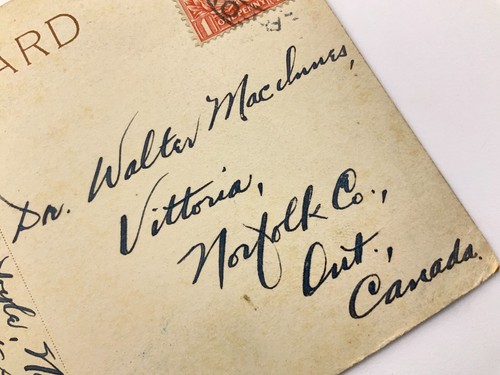 ARD
1 ONE PENNY 1
Dr. Walter MacInnes,
Vittoria,
Norfolk Co.,
Ont.,
Canada.